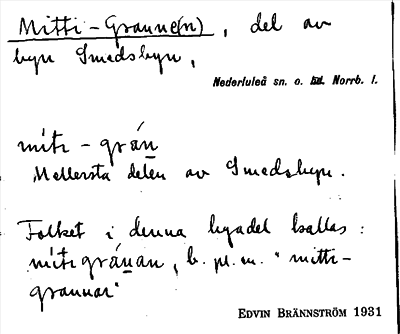 Mitti-Granne(n), del av
byn Smedsbyn,
Nederluleå sn. o. hd. Norrb. l.
mìtı - grán
Mellersta delen av Smedsbyn.
Folket i denna byadel kallas:
mìtıgránan, b. pl. m. "mitti-
grannar"
EDVIN BRÄNNSTRÖM 1931